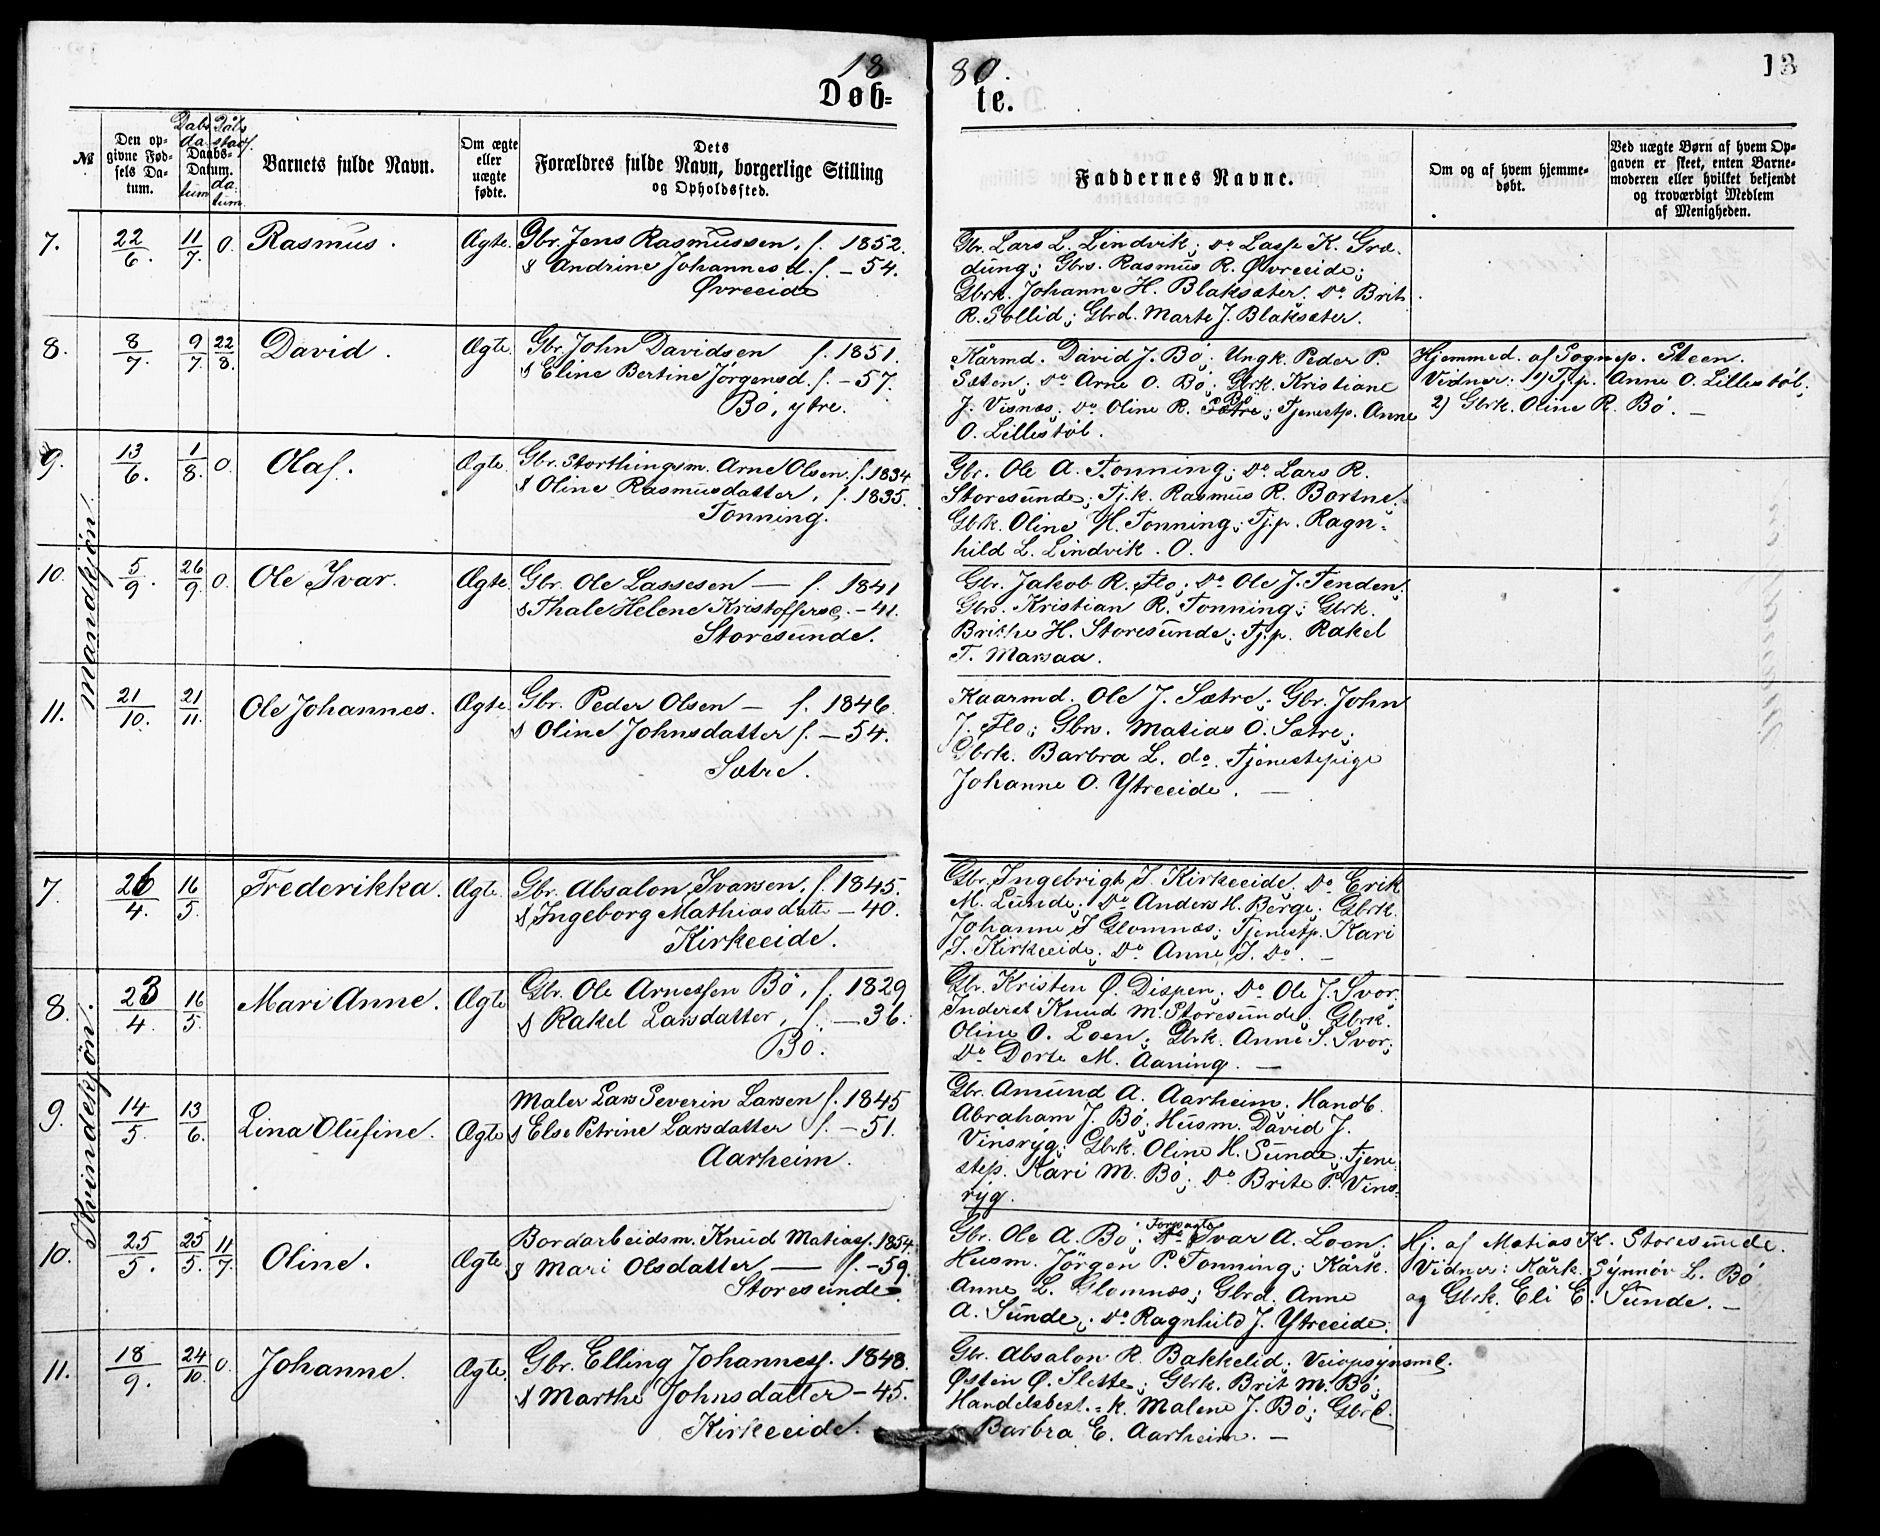 1880.
13
Døb=te.
№
Den op=
givne Fød=
sels Da=
tum.
Daabs=
Datum.
Barnets fulde Navn.
Om ægte
eller
uægte
fødte.
Dets
Forældres fulde Navn, borgerlige Stilling
og Opholdssted.
Faddernes Navne.
Om og af hvem hjemme=
døbt.
Ved uægte Børn af hvem Op=
gaven er skeet, enten Barne=
moderen eller hvilket bekjendt
og troværdigt Medlem
af Menigheden.
Mandkjøn.
7. 22/6. 11/7. 0. Rasmus. Ægte. Gbr. Jens Rasmussen, f. 1852.
& Andrine Johannesd. f. - 54.
Øvreeide
Gbr. Lars L. Lindvik; Do Lasse K. Græ-
dung; Gbrs. Rasmus R. Øvreeide;
Gbrk. Johanne H. Blaksæter. Do Brit
R. Sollid; Gbrd. Marte J. Blaksæter.
8. 8/7. 9/7. 22/8. David. Ægte. Gbr. John Davidsen f. 1851.
& Eline Bertine Jørgensd. f. - 57.
Bö, ytre.
Kårmd. David J. Bö; Ungk. Peder P.
Sæten; Do Arne O. Bö; Gbrk. Kristiane
J. Visnæs; Do Oline R. Sætre Bö; Tjenestp. Anne
O. Lillestöl.
Hjemmed. af Sognep. Steen.
Vidner: 1) Tj.p. Anne O. Lillestöl;
2) Gbrk. Oline R. Bö. —
9. 13/6. 1/8. 0. Olaf. Ægte. Gbr. Storthingsm. Arne Olsen, f. 1834
& Oline Rasmusdatter, f. 1835.
Tonning.
Gbr. Ole A. Tonning; Do Lars R.
Storesunde; Tj.k. Rasmus R. Bortne;
Gbrk. Oline H. Tonning; Tj.p. Ragn-
hild L. Lindvik. O.
10. 5/9. 26/9. 0. Ole Ivar. Ægte. Gbr. Ole Lassesen — f. 1841
& Thale Helene Kristoffersd. - 41.
Storesunde.
Gbr. Jakob R. Flo; Do Ole J. Tenden;
Gbrs. Kristian R. Tonning; Gbrk.
Brithe H. Storesunde; Tj.p. Rakel
T. Marsaa.
11. 21/10. 21/11. Ole Johannes. Ægte. Gbr. Peder Olsen — f. 1846.
& Oline Johnsdatter f. - 54.
Sætre.
Kaarmd. Ole J. Sætre; Gbr. John
J. Flo; Gbrs. Matias O. Sætre;
Gbrk. Barbra L. do. Tjenestepige
Johanne O. Ytreeide. —
Kvindekjøn.
7. 26/4. 16/5. Frederikka. Ægte. Gbr. Absalon Ivarsen, f. 1845.
& Ingeborg Mathiasdatt. - 40.
Kirkeeide.
Gbr. Ingebrigt J. Kirkeeide. Do Erik
M. Lunde; Do Anders H. Berge; Gbrk.
Johanne J. Glomnæs; Tjenestp. Kari
J. Kirkeeide; Do Anne J. Do. —
8. 23/4. 16/5. Mari Anne. Ægte. Gbr. Ole Arnessen Bö, f. 1829.
& Rakel Larsdatter, f. — 36.
Bö.
Gbr. Kristen Ø. Dispen; Do Ole J. Svor;
Inderst Knud M. Storesunde; Gbrk.
Oline O. Loen; Gbrk. Anne S. Svor;
Do Dorte M. Aaning. —
9. 14/5. 13/6. Lina Olufine. Ægte Maler Lars Severin Larsen f. 1845
& Else Petrine Larsdatter f. - 51.
Aarheim.
Gbr. Amund A. Aarheim. Handb.
Abraham J. Bö; Husm. David J.
Vinsryg; Gbrk. Oline H. Sunde; Tjene-
step. Kari M. Bö; Do Brite P. Vins-
ryg.
10. 25/5. 25/5. 11/7. Oline. Ægte. Bordarbeidsm. Knud Matiass. 1854.
& Mari Olsdatter — f. - 59.
Storesunde.
Gbr. Ole A. Bö; Forpagter Ivar A. Loen;
Husm. Jörgen P. Tonning; Kårk.
Anne L. Glomnæs; Gbrd. Anne
A. Sunde; Do Ragnhild J. Ytreeide.
Hj. af Matias K. Storesunde.
Vidner: Kårk. Synnöv L. Bö
og Gbrk. Eli E. Sunde. —
11. 18/9. 24/10. 0. Johanne. Ægte. Gbr. Elling Johanness. 1848.
& Marthe Johnsdatter - 45.
Kirkeeide.
Gbr. Absalon R. Bakkelid; Veiopsynsmd.
Østen Ø. Slette; Gbrk. Brit M. Bö;
Handelsbest.=k. Malene J. Bö; Gbrd.
Barbra E. Aarheim. —